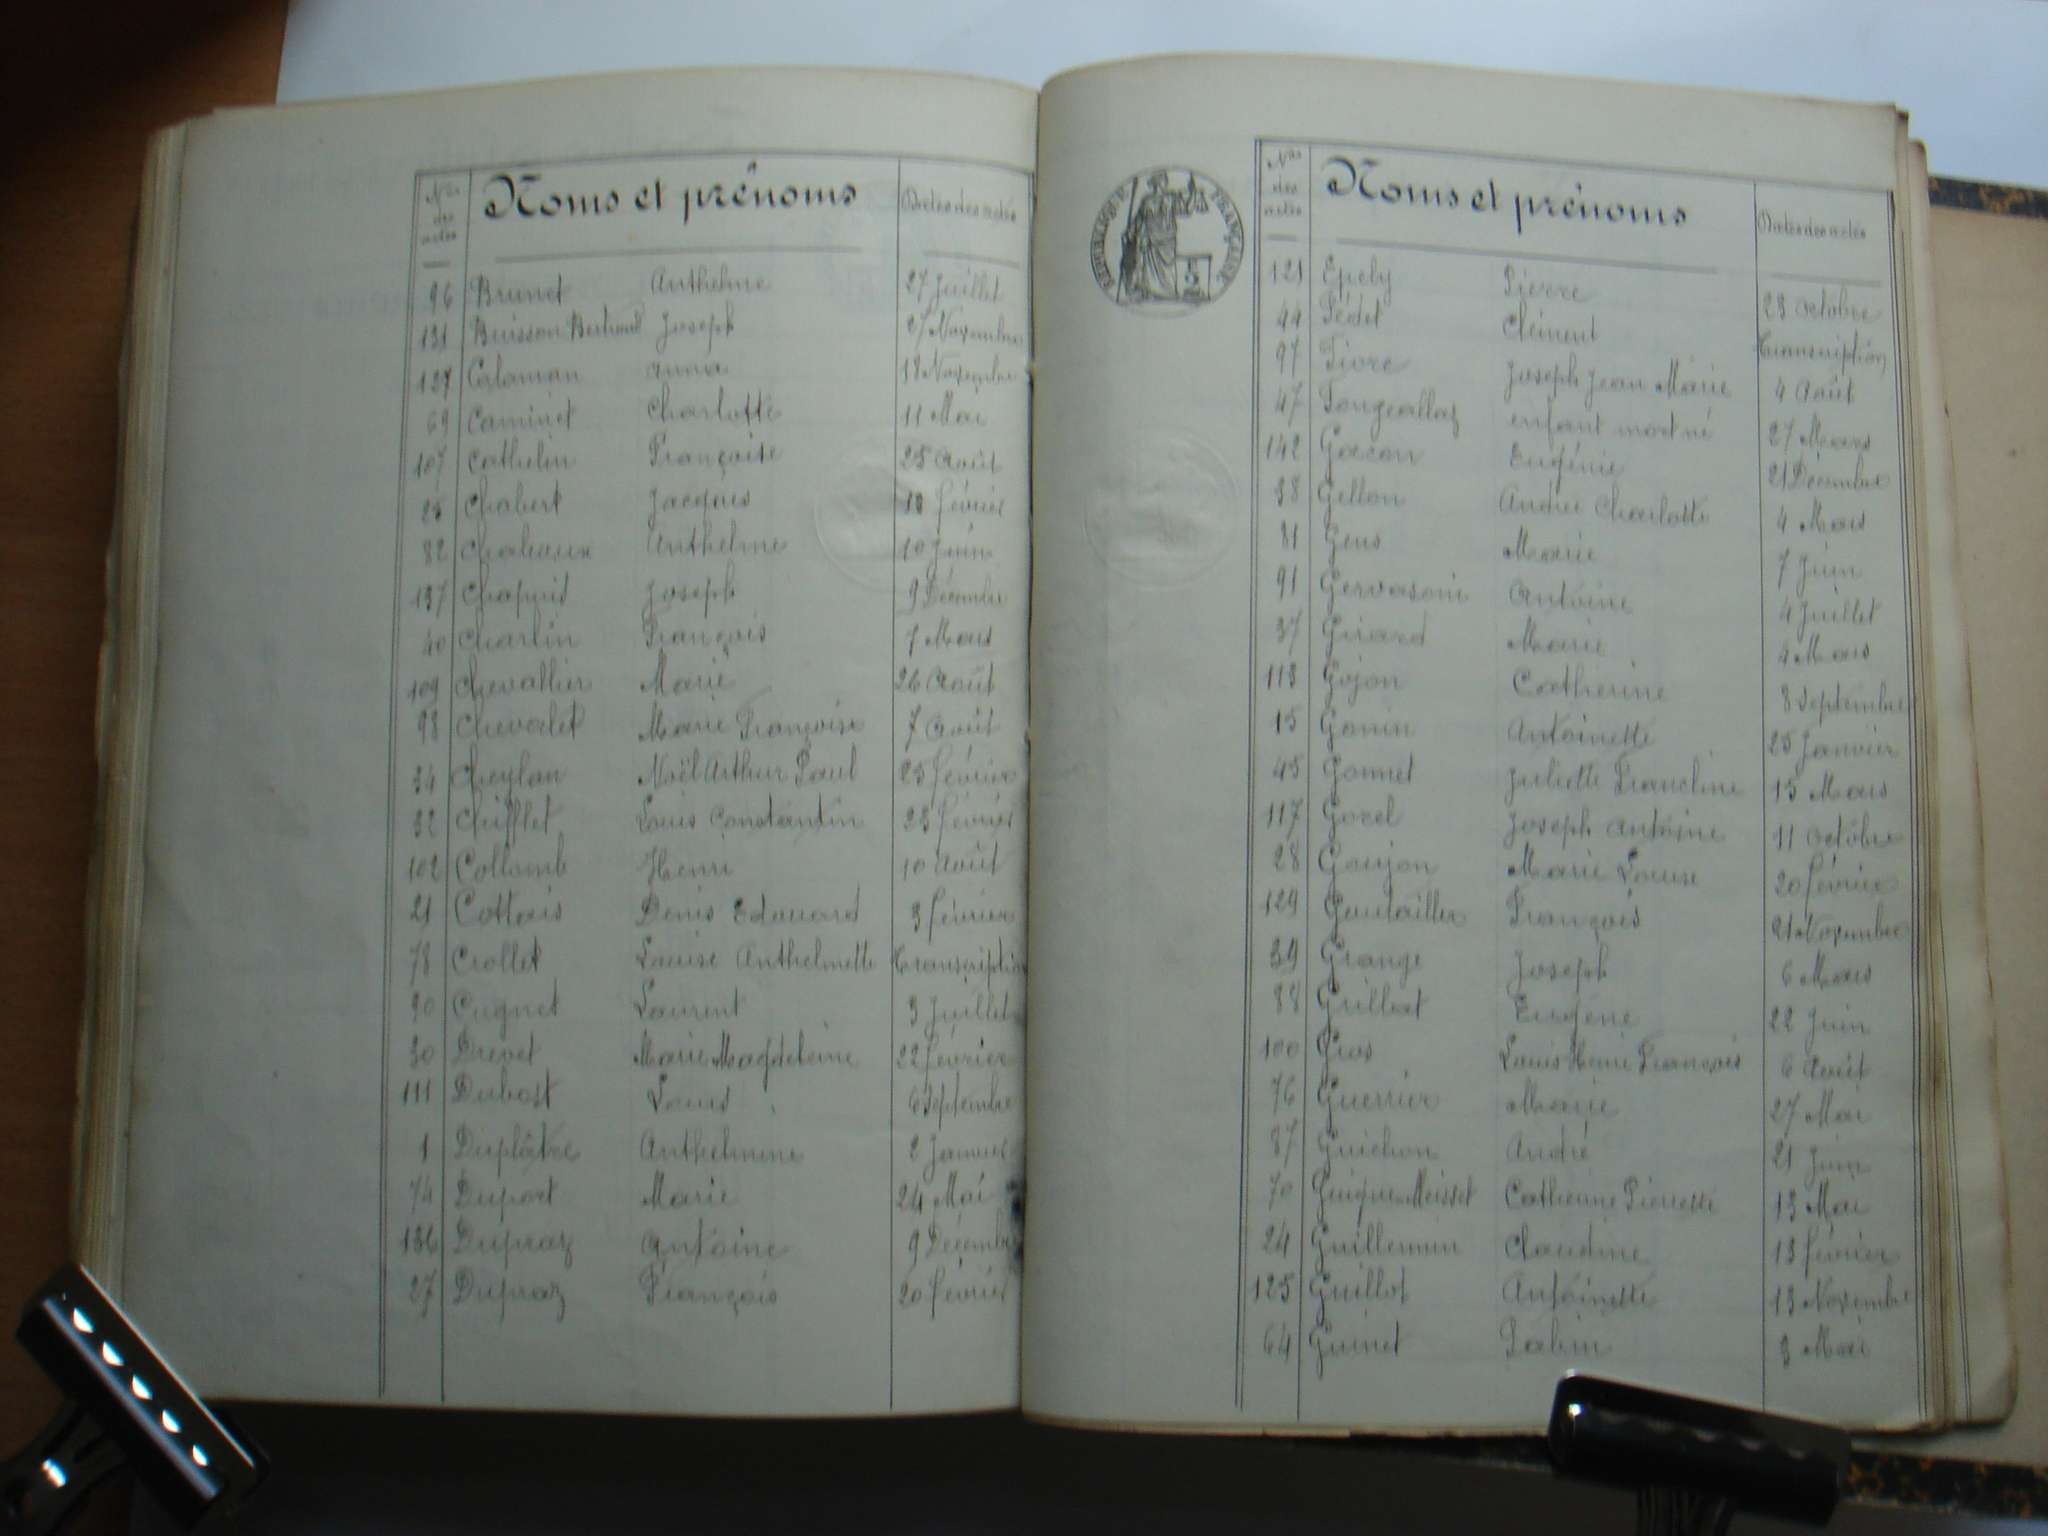 Nos des actes Noms et prénoms Dates des actes
96 Brunet Anthelme 27 Juillet
131 Buisson Bertrand Joseph 27 Novembre
127 Calaman Anna 18 Novembre
69 Caminet Charlotte 11 Mai
107 Cathelin Françoise 25 Août
25 Chabert Jacques 18 février
82 Chaboux Anthelme 10 Juin
137 Chapuis Joseph 9 Décembre
40 Charlin François 7 Mars
109 Chevallier Marie 26 Août
98 Chevalet Marie Françoise 7 Août
34 Cheylan Noël Arthur Paul 25 février
32 Chifflet Louis Constantin 23 février
102 Collomb Henri 10 Août
21 Cottais Denis Edouard 3 février
78 Crollet Louise Anthelmette transcription
90 Cugnet Laurent 3 Juillet
30 Drevet Marie Magdeleine 22 février
111 Dubost Louis 6 Septembre
1 Duplâtre Anthelmine 2 Janvier
74 Duport Marie 24 Mai
136 Dupraz Antoine 9 Décembre
27 Dupraz François 20 février
RÉPUBLIQUE FRANÇAISE
Nos des actes Noms et prénoms Dates des actes
121 Epely Pierre 23 octobre
44 Fédet Clément transcription
97 Fivre Joseph Jean Marie 4 Août
47 Fongeallaz enfant mort né 27 Mars
142 Gacon Eugénie 21 Décembre
38 Gellon André Charlotte 4 Mars
81 Gens Marie 7 Juin
91 Gervasoni Antoine 4 Juillet
37 Girard Marie 4 Mars
113 Gojon Catherine 8 Septembre
15 Gonin Antoinette 25 Janvier
45 Gonnet Juliette Francline 15 Mars
117 Gorel Joseph Antoine 11 octobre
28 Goujon Marie Louise 20 février
129 Goutailler François 21 Novembre
39 Grange Joseph 6 Mars
88 Grilliat Eugène 22 Juin
100 Gros Louis Henri François 6 Août
76 Guerrier Marie 27 Mai
87 Guichon André 21 Juin
70 Guigue Moisset Catherine Pierrette 13 Mai
24 Guillermin Claudine 13 février
125 Guillot Antoinette 13 Novembre
64 Guinet Fabin 3 Mai